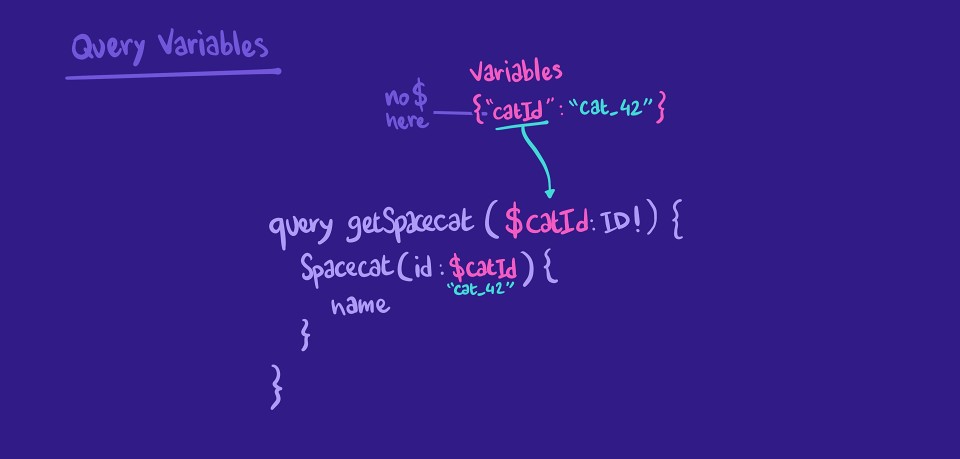 Query Variables
Variables
no $
here
{"catId" : "cat_42"}
query getSpacecat ($catId: ID!) {
Spacecat(id : $catId) {
"cat_42"
name
}
}